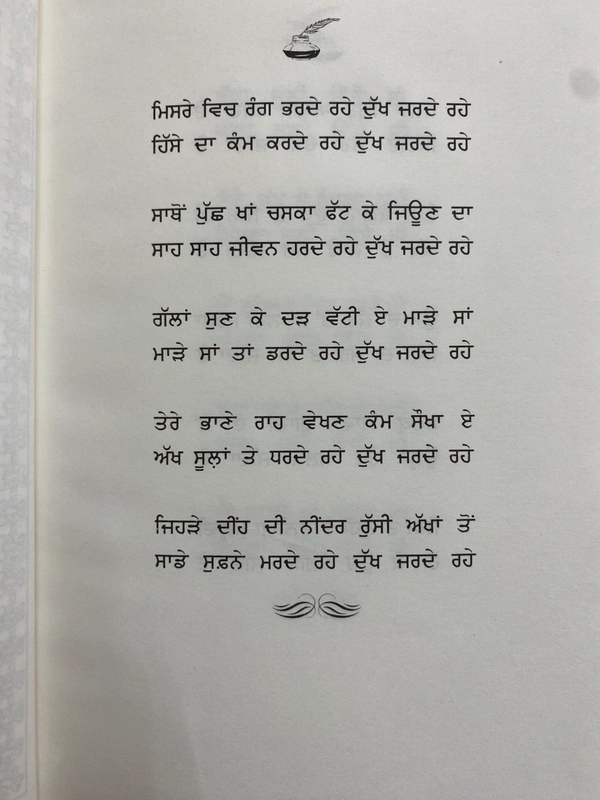 ਮਿਸਰੇ ਵਿਚ ਰੰਗ ਭਰਦੇ ਰਹੇ ਦੁੱਖ ਜਰਦੇ ਰਹੇ
ਹਿੱਸੇ ਦਾ ਕੰਮ ਕਰਦੇ ਰਹੇ ਦੁੱਖ ਜਰਦੇ ਰਹੇ
ਸਾਥੋਂ ਪੁੱਛ ਖਾਂ ਚਸਕਾ ਫੱਟ ਕੇ ਜਿਊਣ ਦਾ
ਸਾਹ ਸਾਹ ਜੀਵਨ ਹਰਦੇ ਰਹੇ ਦੁੱਖ ਜਰਦੇ ਰਹੇ
ਗੱਲਾਂ ਸੁਣ ਕੇ ਦੜ ਵੱਟੀ ਏ ਮਾੜੇ ਸਾਂ
ਮਾੜੇ ਸਾਂ ਤਾਂ ਡਰਦੇ ਰਹੇ ਦੁੱਖ ਜਰਦੇ ਰਹੇ
ਤੇਰੇ ਭਾਣੇ ਰਾਹ ਵੇਖਣ ਕੰਮ ਸੌਖਾ ਏ
ਅੱਖ ਸੂਲਾਂ ਤੇ ਧਰਦੇ ਰਹੇ ਦੁੱਖ ਜਰਦੇ ਰਹੇ
ਜਿਹੜੇ ਦੀਂਹ ਦੀ ਨੀਂਦਰ ਰੁੱਸੀ ਅੱਖਾਂ ਤੋਂ
ਸਾਡੇ ਸੁਫ਼ਨੇ ਮਰਦੇ ਰਹੇ ਦੁੱਖ ਜਰਦੇ ਰਹੇ